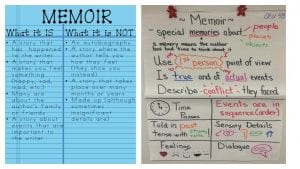 MEMOIR
What it is
What it is NOT
• A story that
has happened
to the writer
• A story that
makes you feel
something
(happy, sad,
mad, etc.)
• Many are
about the
author's family
or friends
• A story about
events that are
important to
the writer
• An autobiography
• A story where the
author tells you
how they feel
(they show you
instead)
• A story that takes
place over many
months or years
• Made up (although
sometimes
insignificant
details are)
~Memoir~
special memories about:
people
places
objects
A memory means the author
had time to think about it
Use 1st person point of view
Is true and of actual events
Describe conflict they faced
Time
Passes
Events are in
sequence (order)
Told in past
tense with
Sensory Details
Feelings
Dialogue